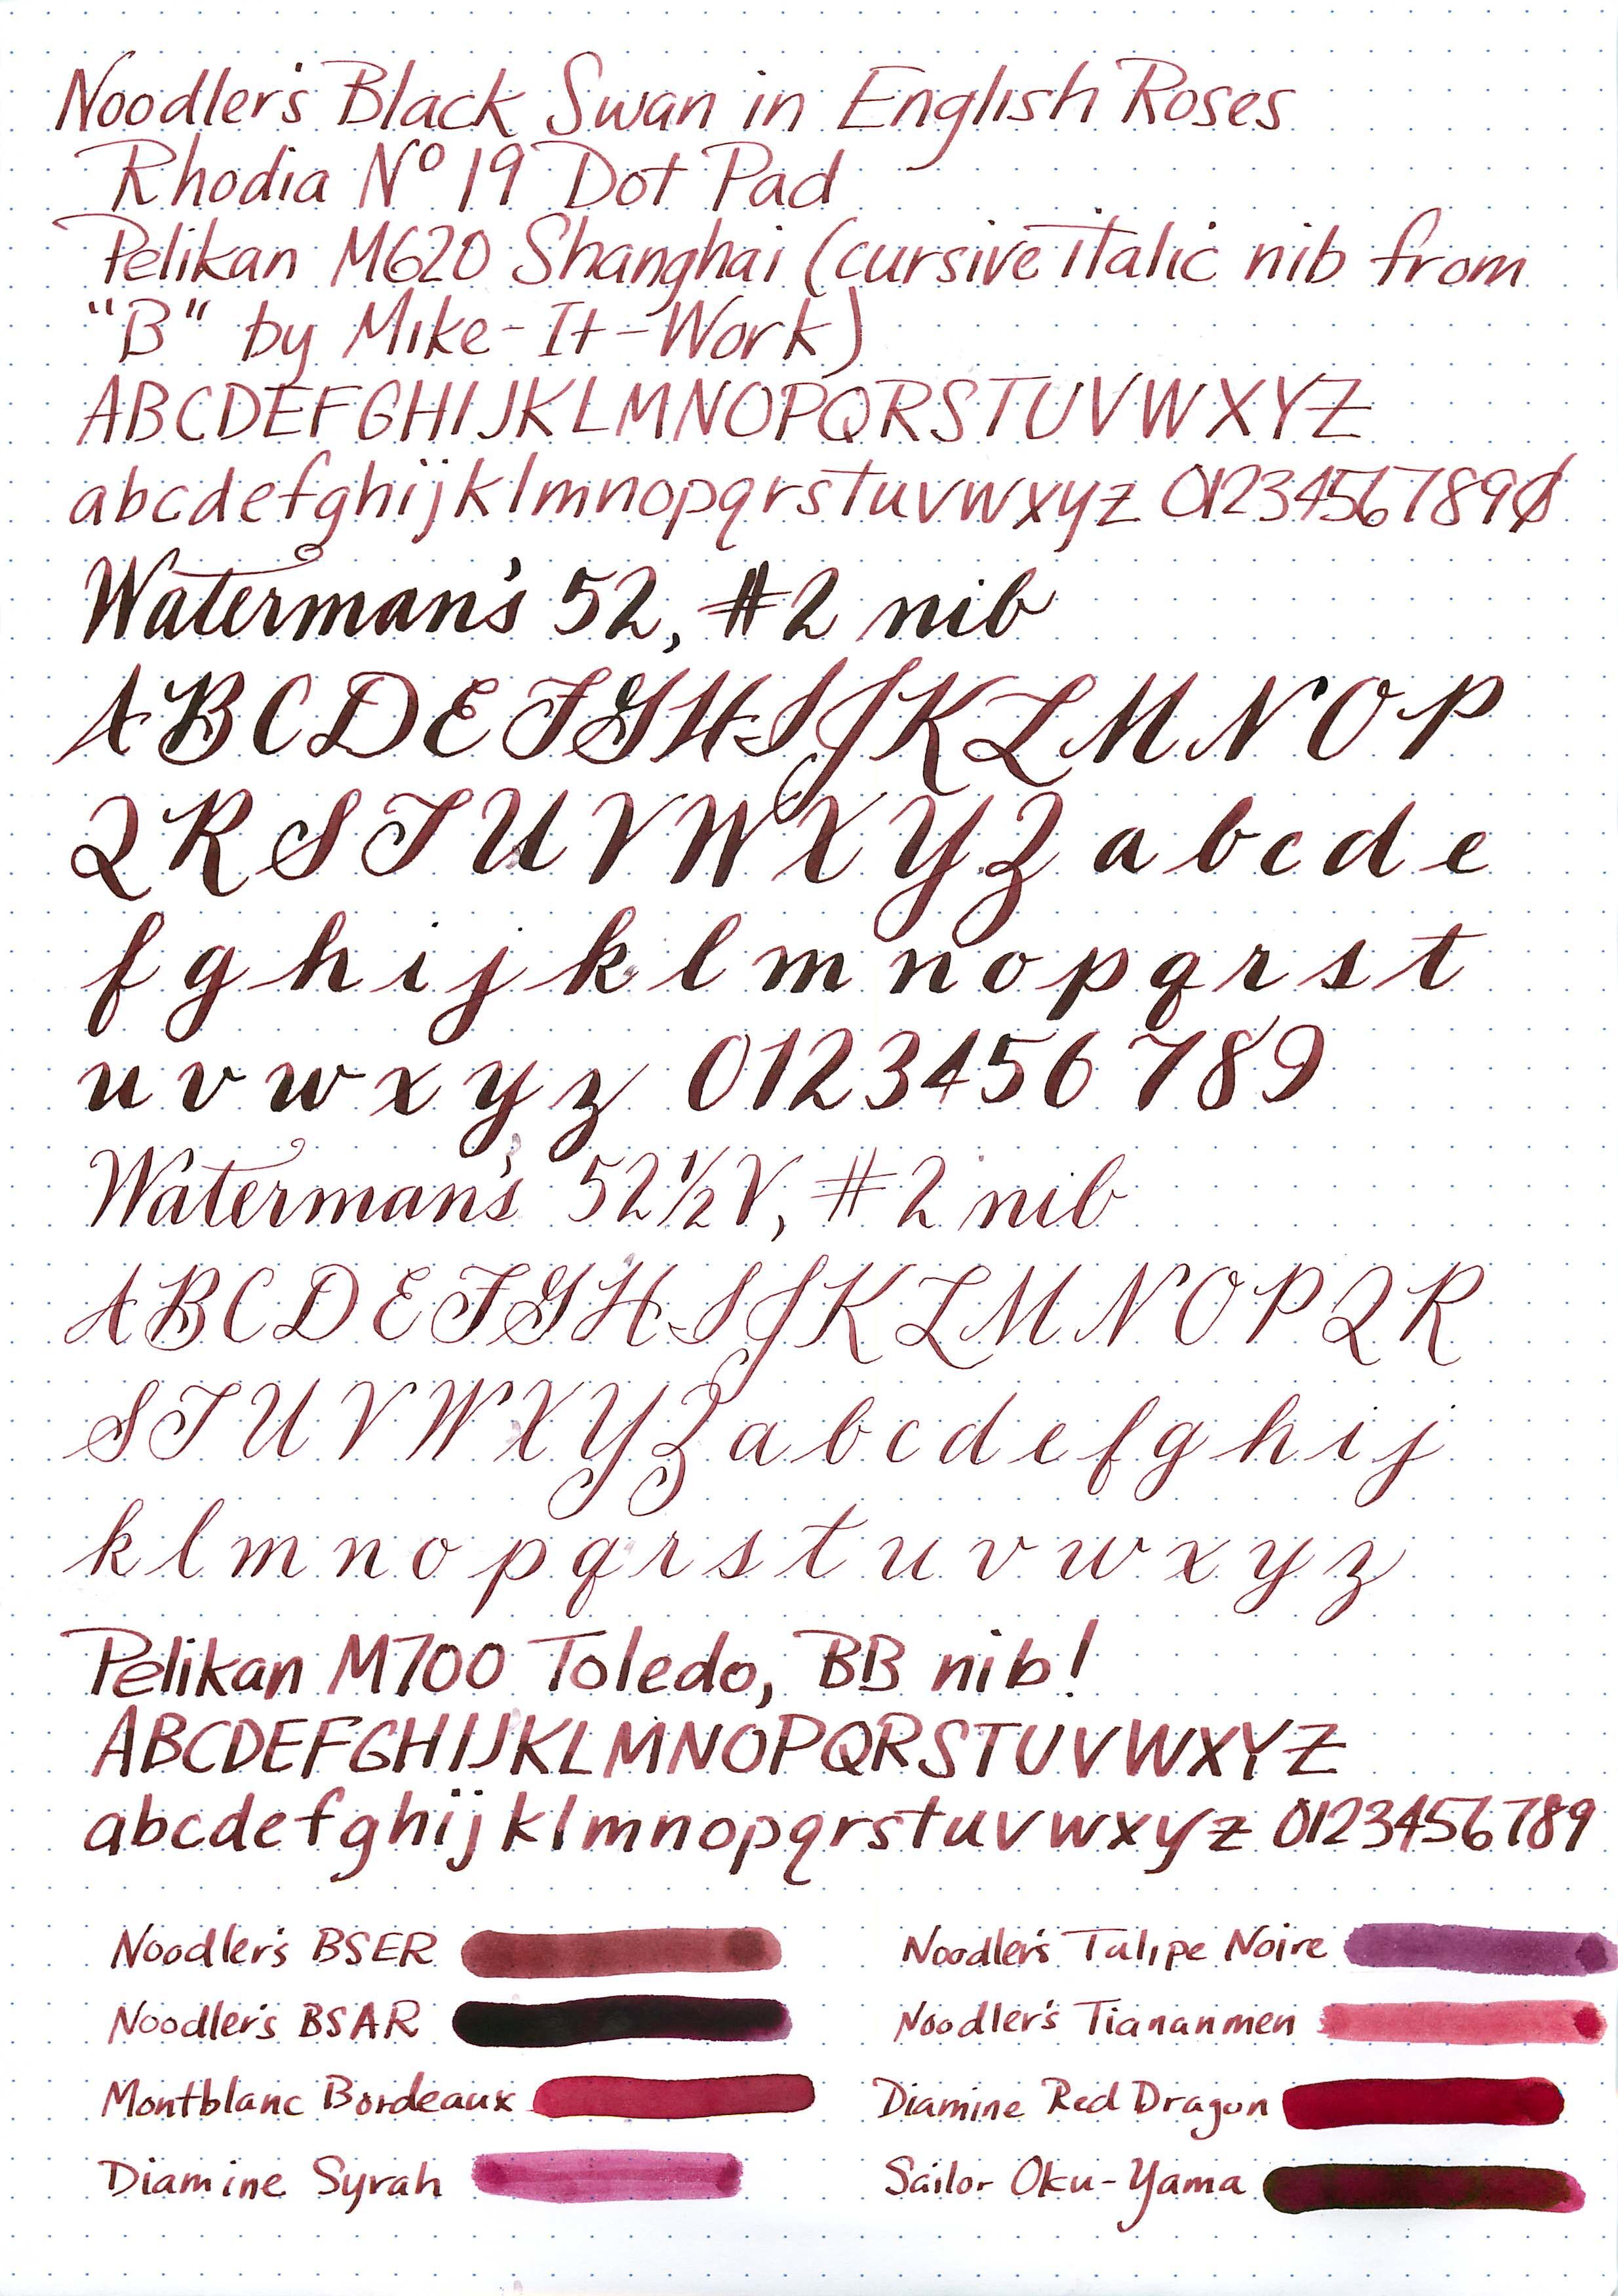 Noodler's Black Swan in English Roses
Rhodia Nº 19 Dot Pad
Pelikan M620 Shanghai (cursive italic nib from
"B" by Mike-It-Work)
ABCDEFGHIJKLMNOPQRSTUVWXYZ
abcdefghijklmnopqrstuvwxyz 0123456789Ø
Waterman's 52, #2 nib
A B C D E F G H I J K L M N O P
Q R S T U V W X Y Z a b c d e
f g h i j k l m n o p q r s t
u v w x y z 0123456789
Waterman's 52½V, #2 nib
A B C D E F G H I J K L M N O P Q R
S T U V W X Y Z a b c d e f g h i j
k l m n o p q r s t u v w x y z
Pelikan M700 Toledo, BB nib!
ABCDEFGHIJKLMNOPQRSTUVWXYZ
abcdefghijklmnopqrstuvwxyz 0123456789
Noodler's BSER
Noodler's Tulipe Noire
Noodler's BSAR
Noodler's Tiananmen
Montblanc Bordeaux
Diamine Red Dragon
Diamine Syrah
Sailor Oku-Yama